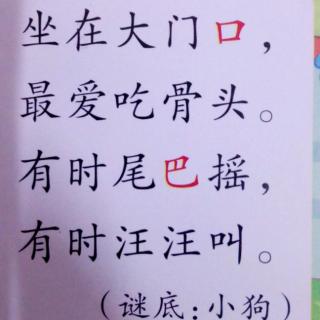 坐在大门口，
最爱吃骨头。
有时尾巴摇，
有时汪汪叫。
（谜底：小狗）